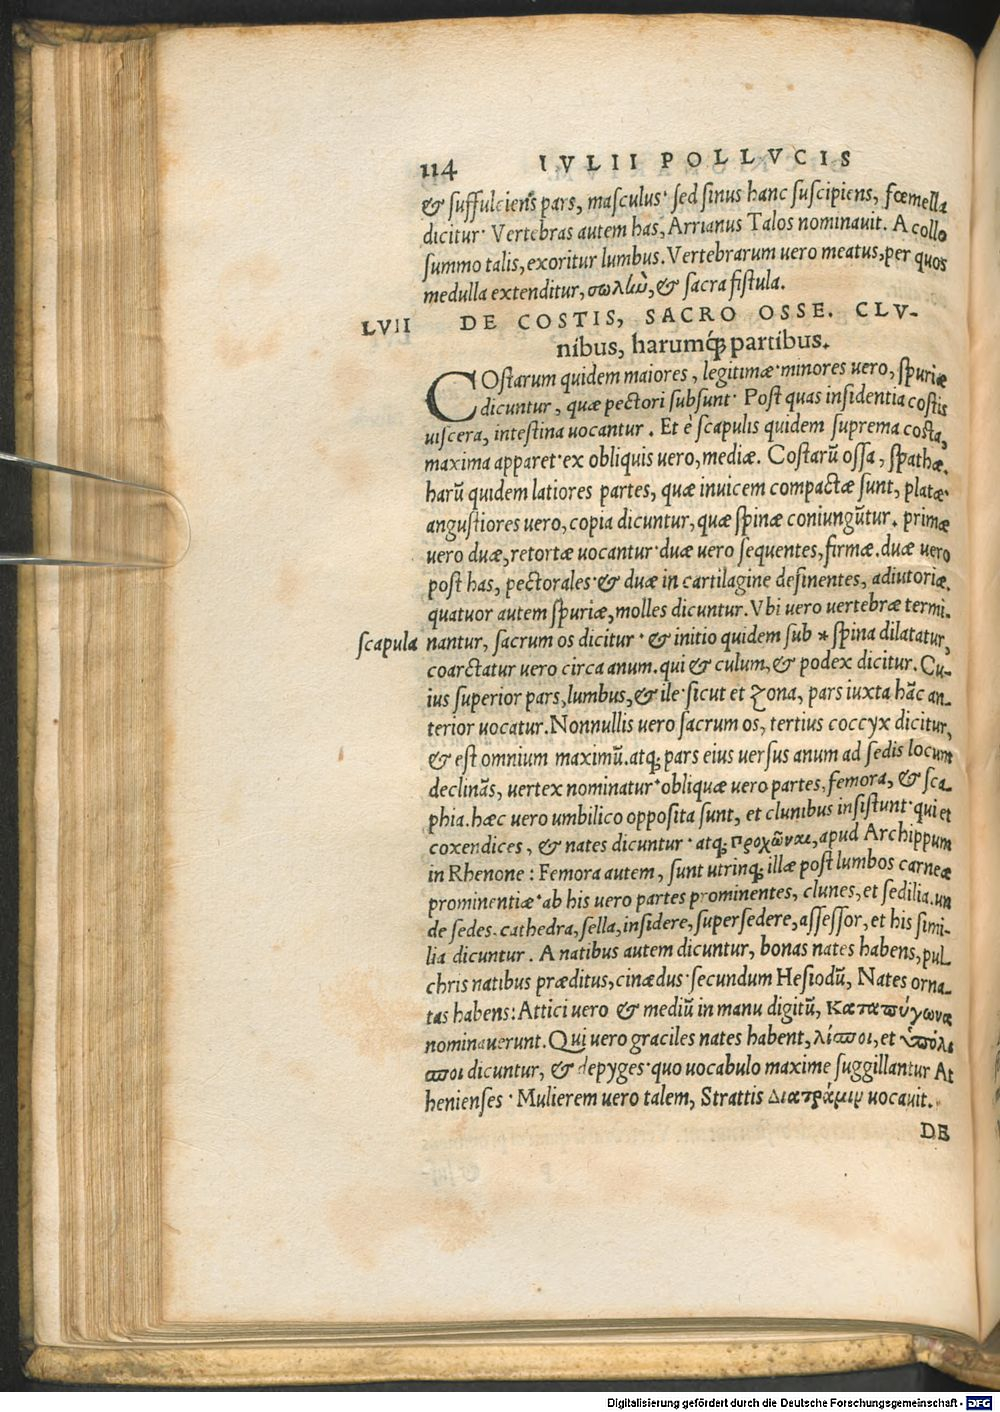 114 IVLII POLLVCIS
& suffulciens pars, masculus· sed sinus hanc suscipiens, fœmella
dicitur· Vertebras autem has, Arrianus Talos nominauit. A collo
summo talis, exoritur lumbus. Vertebrarum uero meatus, per quos
medulla extenditur, & sacra fistula.
LVII DE COSTIS, SACRO OSSE. CLV-
nibus, harumq́; partibus.
COstarum quidem maiores, legitimæ· minores uero, spuriæ
dicuntur, quæ pectori subsunt· Post quas insidentia costis
uiscera, intestina uocantur. Et è scapulis quidem suprema costa,
maxima apparet· ex obliquis uero, mediæ. Costarũ ossa, spathæ.
harũ quidem latiores partes, quæ inuicem compactæ sunt, platæ·
angustiores uero, copia dicuntur, quæ spinæ coniungũtur. primæ
uero duæ, retortæ uocantur· duæ uero sequentes, firmæ. duæ uero
post has, pectorales· & duæ in cartilagine desinentes, adiutoriæ.
quatuor autem spuriæ, molles dicuntur. Vbi uero uertebræ termi-
scapula nantur, sacrum os dicitur· & initio quidem sub * spina dilatatur,
coarctatur uero circa anum. qui & culum, & podex dicitur. Cu-
ius superior pars, lumbus, & ile· sicut et zona, pars iuxta hãc an-
terior uocatur. Nonnullis uero sacrum os, tertius coccyx dicitur,
& est omnium maximũ. atq; pars eius uersus anum ad sedis locum
declinãs, uertex nominatur· obliquæ uero partes, femora, & sca-
phia. hæc uero umbilico opposita sunt, et clunibus insistunt· qui et
coxendices, & nates dicuntur· atq; προχῶναι, apud Archippum
in Rhenone: Femora autem, sunt utrinq; illæ post lumbos carneæ
prominentiæ· ab his uero partes prominentes, clunes, et sedilia. un
de sedes. cathedra, sella, insidere, supersedere, assessor, et his simi-
lia dicuntur. A natibus autem dicuntur, bonas nates habens, pul-
chris natibus præditus, cinædus· secundum Hesiodũ, Nates orna-
tas habens: Attici uero & mediũ in manu digitũ, Καταπύγωνα
nominauerunt. Qui uero graciles nates habent, λίσποι, et ὑπόλι
σποι dicuntur, & depyges· quo uocabulo maxime suggillantur At
henienses· Mulierem uero talem, Strattis Διατράμιν uocauit.
DE
Digitalisierung gefördert durch die Deutsche Forschungsgemeinschaft - DFG